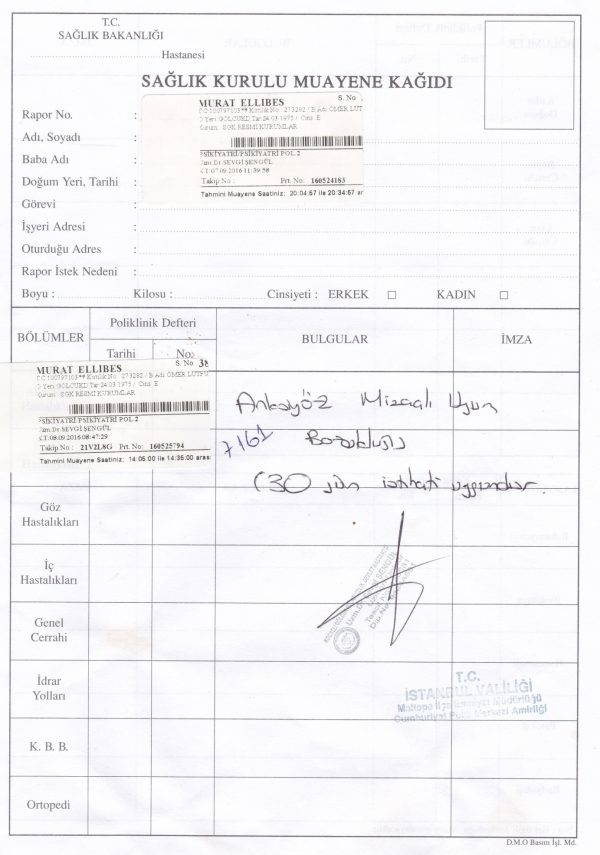 T.C.
SAĞLIK BAKANLIĞI
Hastanesi
SAĞLIK KURULU MUAYENE KAĞIDI
Rapor No. :
Adı, Soyadı :
Baba Adı :
Doğum Yeri, Tarihi :
Görevi :
İşyeri Adresi :
Oturduğu Adres :
Rapor İstek Nedeni :
Boyu : Kilosu : Cinsiyeti : ERKEK □ KADIN □
S. No
MURAT ELLIBES
Kurum: SGK RESMI KURUMLAR
PSİKİYATRİ/PSİKİYATRİ POL 2
Uzm.Dr SEVGİ ŞENGÜL
KT:07.09.2016 11:39:58
Takip No : Prt. No: 160524183
Tahmini Muayene Saatiniz: 20:04:57 ile 20:34:57 ar
BÖLÜMLER
Poliklinik Defteri
Tarihi No:
BULGULAR
İMZA
MURAT ELLIBES
S. No 38
Kurum: SGK RESMI KURUMLAR
PSİKİYATRİ/PSİKİYATRİ POL 2
Uzm.Dr SEVGİ ŞENGÜL
KT:08.09.2016 08:47:29
Takip No : 21V2L8G Prt. No: 160525794
Tahmini Muayene Saatiniz: 14:05:00 ile 14:35:00 aras
Anksiyöz Mizaçlı Uyum
7161 Bozukluğu
(30 gün istirahati uygundur.
Göz
Hastalıkları
İç
Hastalıkları
Genel
Cerrahi
İdrar
Yolları
K. B. B.
Ortopedi
T.C.
İSTANBUL VALİLİĞİ
Maltepe İlçe Emniyet Müdürlüğü
Cumhuriyet Polis Merkezi Amirliği
D.M.O Basım İşl. Md.